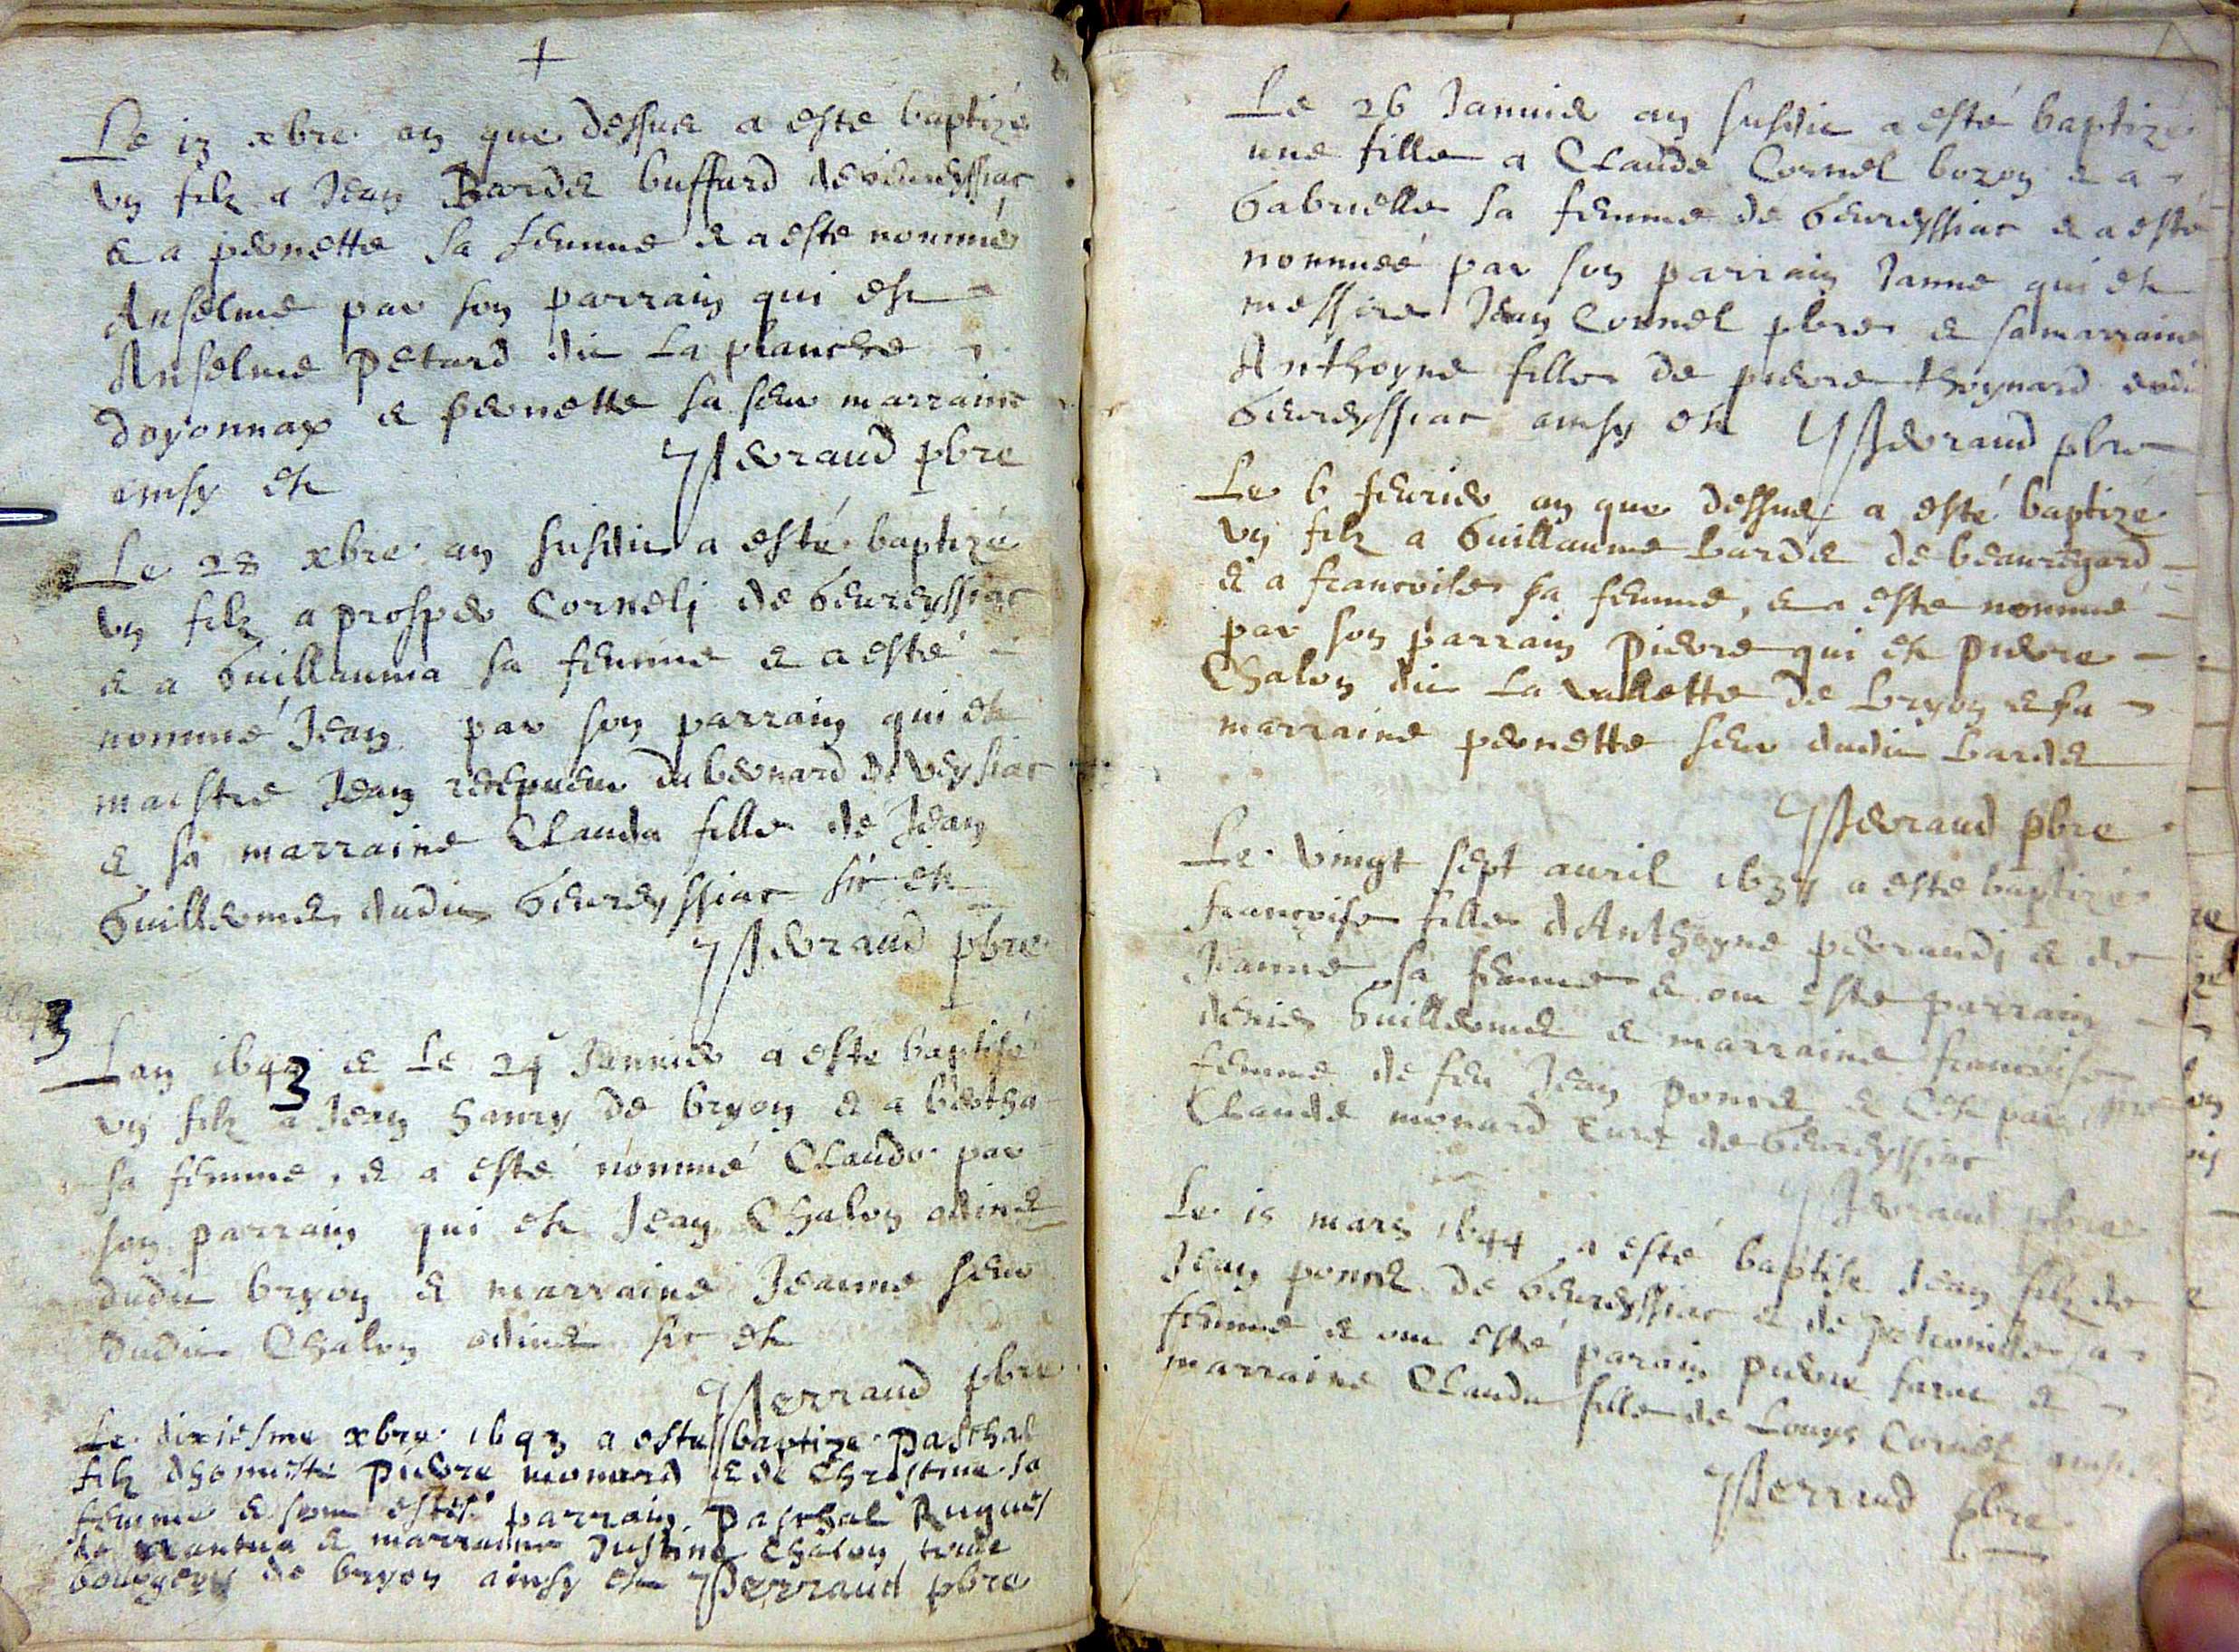 Le 13 xbre an que dessus a esté baptizé
un filz a Jean Bardet buffard de
et a pernette sa femme et a este nommé
Anselme par son parrain qui est
Anselme petard dit La planche
doyonnax et pernette sa seur marraine
ainsy est JPerraud pbre
Le 28 xbre an susdit a esté baptizé
un filz a prosper Cornelj de Geureyssiat
et a Guillauma sa femme et a esté
nommé Jean par son parrain qui est
maistre Jean du bernard de veysiat
et sa marraine Clauda fille de Jean
Guillermet dudit Geureyssiat sic est
JPerraud pbre
3
Lan 1643 et Le 24 Januier a este baptisé
un filz a Jean hanry de bryon et a bertha
sa femme, et a esté nommé Claude par
son parrain qui est Jean Chalon odinet
dudit bryon et marraine Jeanne seur
dudit Chalon odinet sic est
JPerraud pbre
Le dixiesme xbre 1643 a este baptize paschal
filz dhonneste pierre monard et de Christine sa
femme et sont estés parrain paschal
de nantua et marraine Justine Chalon
de bryon ainsy est JPerraud pbre
Le 26 Januier an susdit a esté baptizé
une fille a Claude Cornel bozon et a
Gabrielle sa femme de Geureyssiat et a esté
nommée par son parrain Janne qui est
messire Jean Cornel pbre et sa marraine
Anthoyne fille de pierre thoynard dudit
Geureyssiat ainsy est JPerraud pbre
Le 6 feurier an que dessus a esté baptizé
un filz a Guillaume bardet de beauregard
et a francoise sa femme, et a este nommé
par son parrain pierre qui est pierre
Chalon dit La vallette de bryon et sa
marraine pernette seur dudit bardet
JPerraud pbre
Le vingt sept auril a este baptizé
francoise fille dAnthoyne perraudj et de
Jeanne sa femme et ont este parrain
denis Guillermet et marraine francoise
femme de feu Jean poncet et est par
Claude monard Curé de Geureyssiat
JPerraud pbre
Le 15 mars 1644 a esté baptise Jean filz de
Jean poncet de Geureyssiat et de sa
femme et ont esté parain pierre et
marraine Clauda fille de Louys Cornel
JPerraud pbre